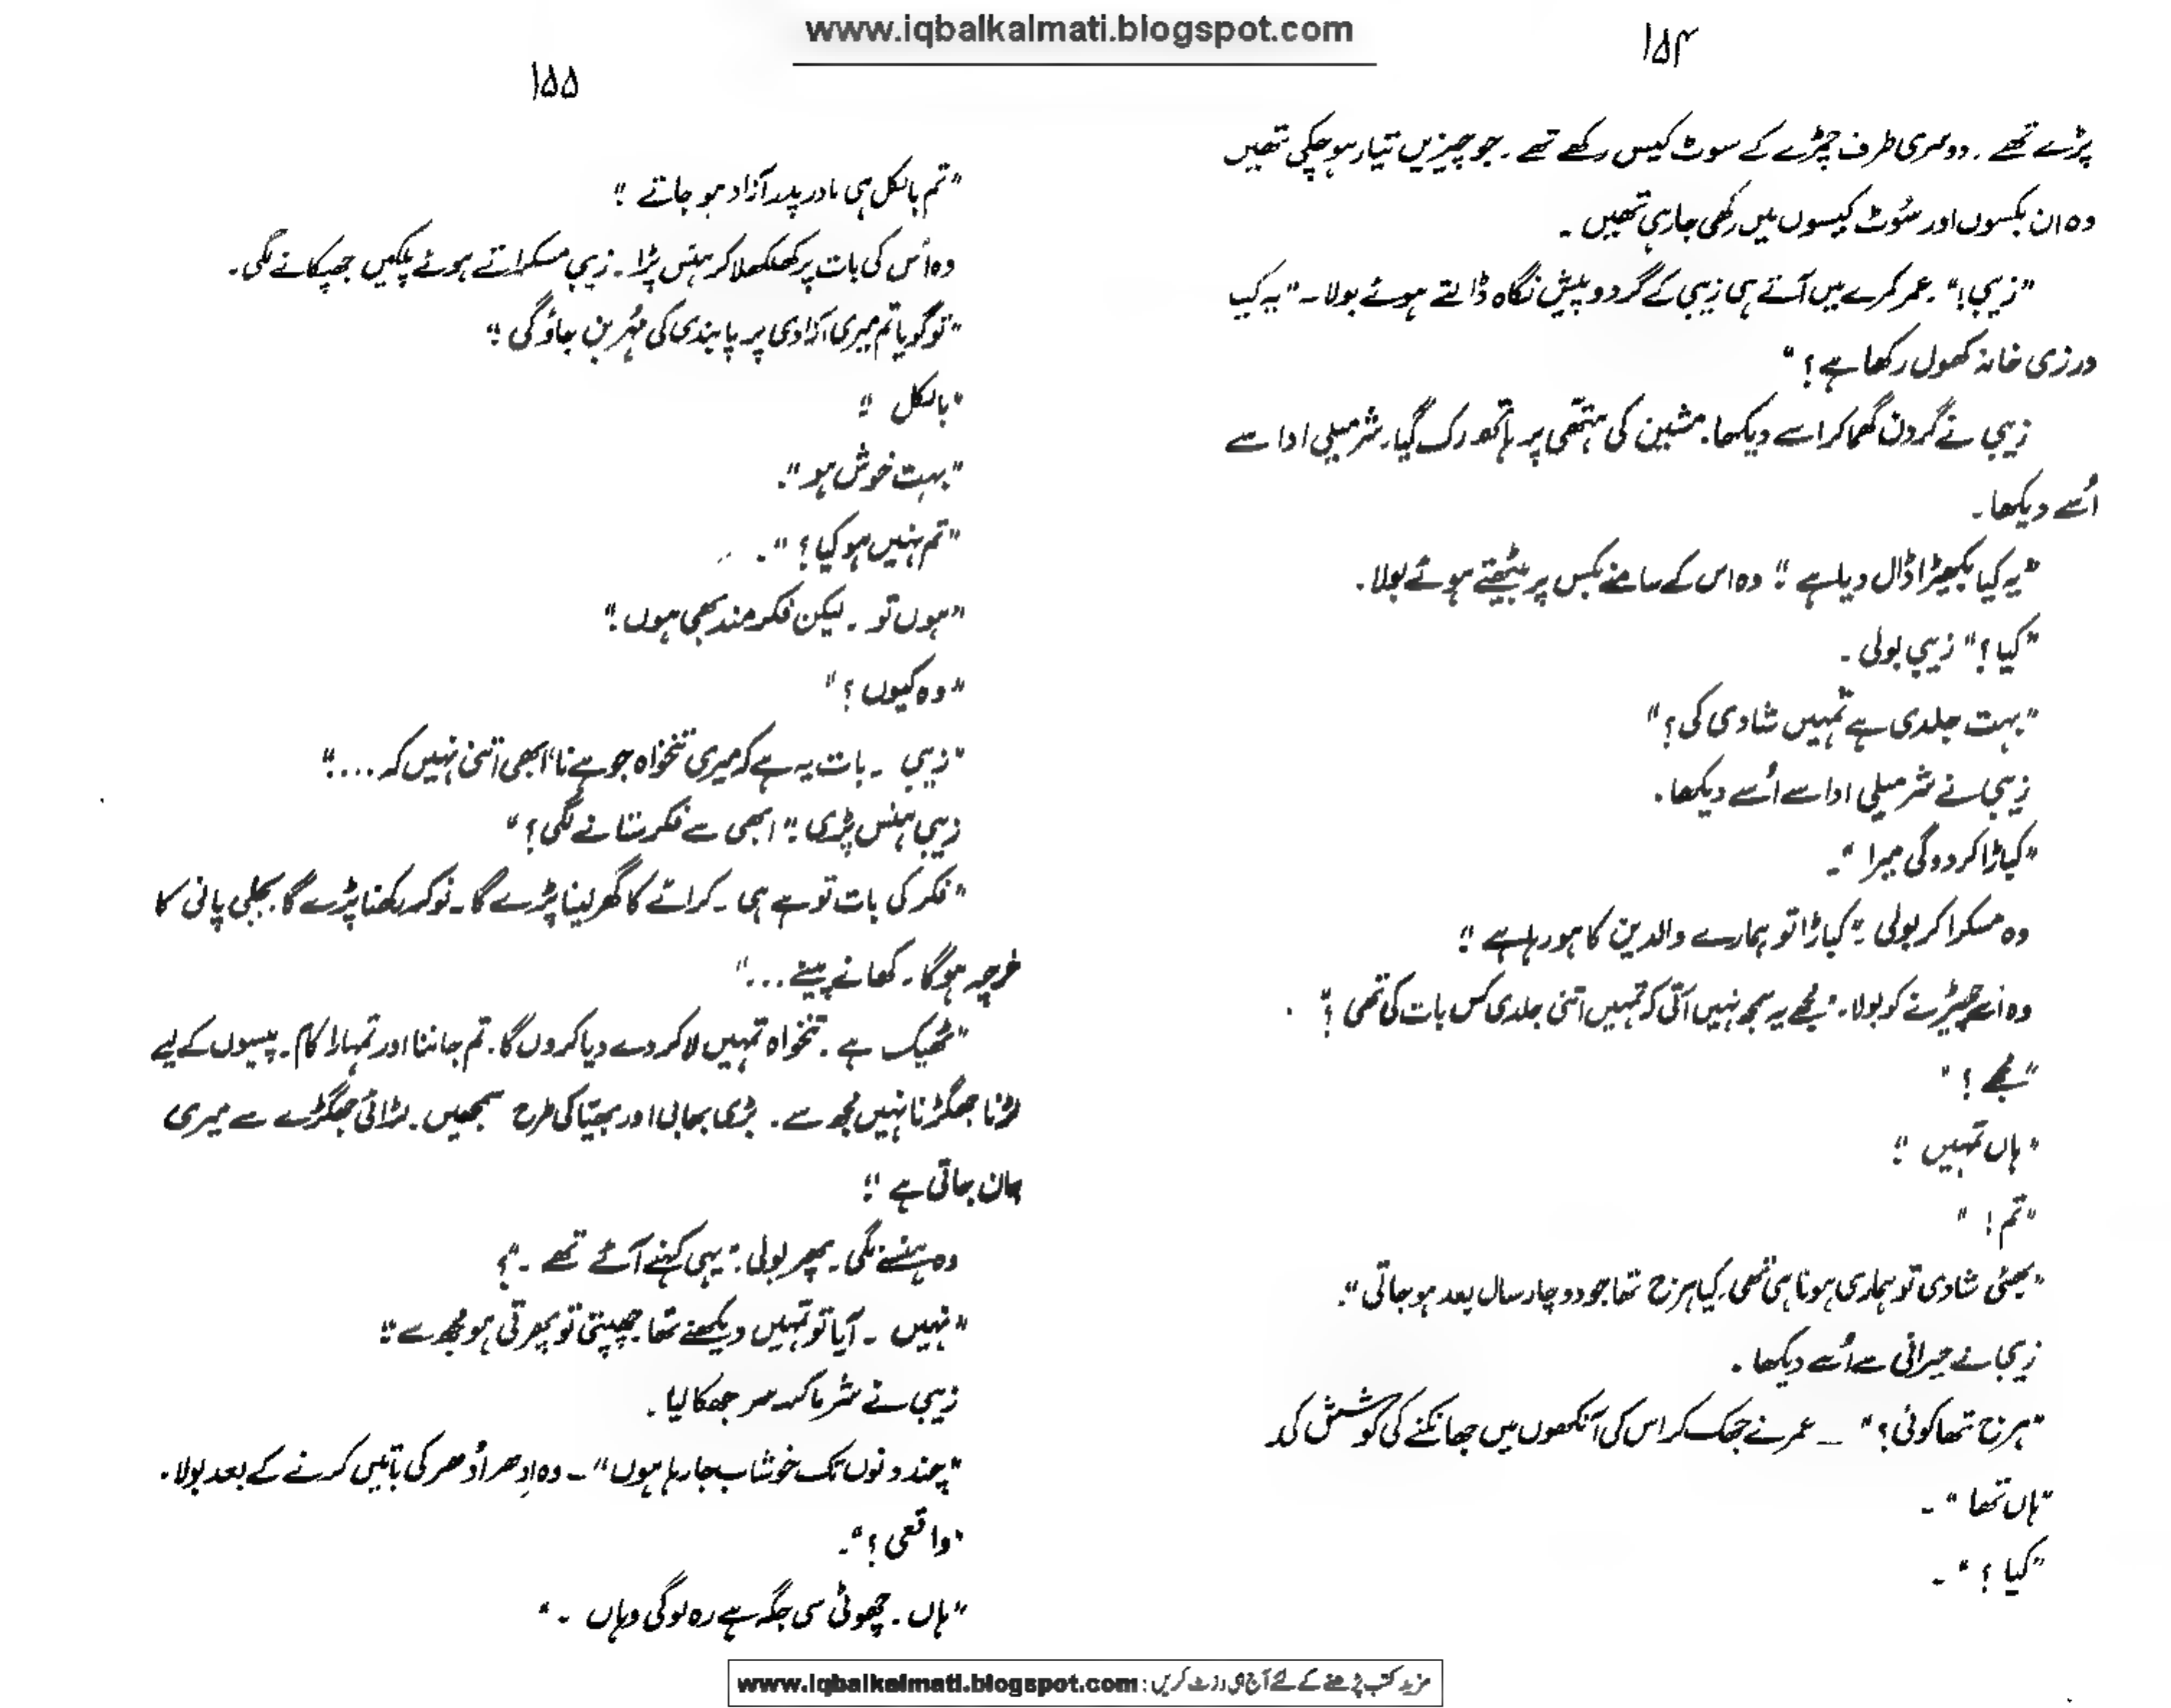 www.iqbalkalmati.blogspot.com
۱۵۴
پڑے تھے ۔ دوسری طرف چمڑے کے سوٹ کیس رکھے تھے ۔ جو چیزیں تیار ہو چکی تھیں
وہ ان بکسوں اور سُوٹ کیسوں میں رکھی جا رہی تھیں ۔
"زیبی!" ۔ عمر کمرے میں آتے ہی زیبی کے گرد و پیش نگاہ ڈالتے ہوئے بولا ۔ "یہ کیا
درزی خانہ کھول رکھا ہے؟"
زیبی نے گردن گھما کر اسے دیکھا۔ مشین کی ہتھی پر ہاتھ رک گیا۔ شرمیلی ادا سے
اُسے دیکھا ۔
"یہ کیا بکھیڑا ڈال دیا ہے" وہ اس کے سامنے بکس پر بیٹھتے ہوئے بولا۔
"کیا؟" زیبی بولی ۔
"بہت جلدی ہے تمہیں شادی کی؟"
زیبی نے شرمیلی ادا سے اُسے دیکھا۔
"کباڑا کر دو گی میرا" ۔
وہ مسکرا کر بولی "کباڑا تو ہمارے والدین کا ہو رہا ہے"
وہ اسے چھیڑنے کو بولا۔ "مجھے یہ سمجھ نہیں آتی کہ تمہیں اتنی جلدی کس بات کی تھی؟"
"مجھے؟"
"ہاں تمہیں"
"تم!"
"بھئی شادی تو ہماری ہونا ہی تھی۔ کیا ہرج تھا جو دو چار سال بعد ہو جاتی"۔
زیبی نے حیرانی سے اُسے دیکھا ۔
"ہرج تھا کوئی؟" ــ عمر نے جھک کر اس کی آنکھوں میں جھانکنے کی کوشش کی۔
"ہاں تھا" ۔
"کیا؟" ۔
۱۵۵
"تم بالکل ہی مادر پدر آزاد ہو جاتے"
وہ اُس کی بات پر کھلکھلا کر ہنس پڑا ۔ زیبی مسکراتے ہوئے پلکیں جھپکانے لگی۔
"تو گویا تم میری آزادی پر پابندی کی مُہر بن جاؤ گی"
"بالکل"
"بہت خوش ہو"۔
"تم نہیں ہو کیا؟" ۔
"ہوں تو ۔ لیکن فکر مند بھی ہوں"
"وہ کیوں؟"
"زیبی ۔ بات یہ ہے کہ میری تنخواہ جو ہے نا ابھی اتنی نہیں کہ ...."
زیبی ہنس پڑی "ابھی سے فکر ستانے لگی؟"
"فکر کی بات تو ہے ہی ۔ کرائے کا گھر لینا پڑے گا ۔ نوکر رکھنا پڑے گا۔ بجلی پانی کا
خرچہ ہوگا ۔ کھانے پینے ..."
"ٹھیک ہے ۔ تنخواہ تمہیں لا کر دے دیا کروں گا۔ تم جاننا اور تمہارا کام ۔ پیسوں کے لیے
لڑنا جھگڑنا نہیں مجھ سے ۔ بڑی بھابی اور بھیّا کی طرح سمجھیں ۔ لڑائی جھگڑے سے میری
جان جاتی ہے"
وہ ہنسنے لگی ۔ پھر بولی: "یہی کہنے آئے تھے ۔؟"
"نہیں ۔ آیا تو تمہیں دیکھنے تھا۔ چھپتی تو پھرتی ہو مجھ سے"
زیبی نے شرما کر سر جھکا لیا ۔
"چند دنوں تک خوشاب جا رہا ہوں" ــ وہ اِدھر اُدھر کی باتیں کرنے کے بعد بولا ۔
"واقعی؟"۔
"ہاں ۔ چھوٹی سی جگہ ہے رہ لو گی وہاں ۔"
مزید کتب پڑھنے کے لئے آج ہی وزٹ کریں : www.iqbalkalmati.blogspot.com